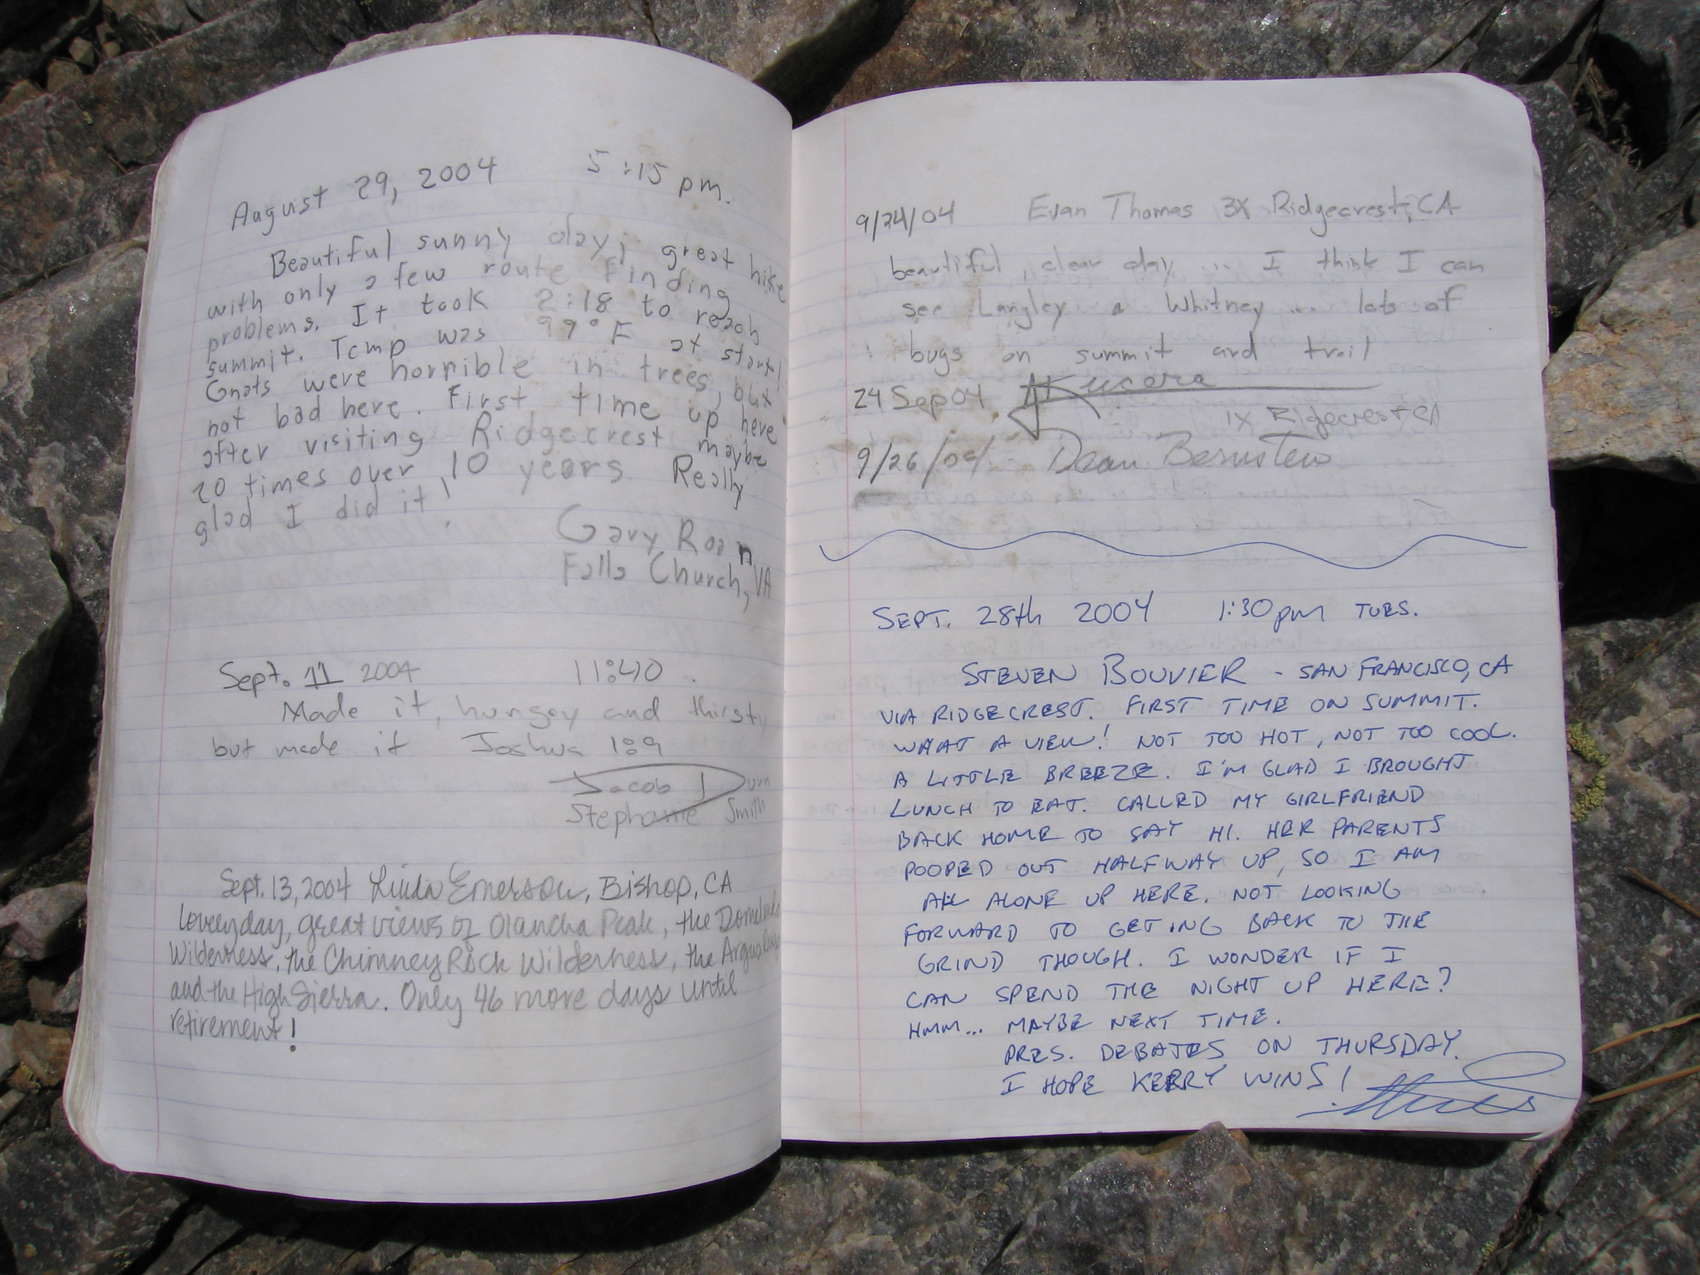 August 29, 2004 5:15 pm.
Beautiful sunny day; great hike
with only a few route finding
problems. It took 2:18 to reach
summit. Temp was 99°F at start!
Gnats were horrible in trees, but
not bad here. First time up here
after visiting Ridgecrest maybe
20 times over 10 years. Really
glad I did it!
Gary Roan
Falls Church, VA
Sept. 11 2004 11:40
Made it, hungey and thirsty
but made it Joshua 1:9
Jacob J Dunn
Stephanie Smith
Sept. 13, 2004 Linda Emerson, Bishop, CA
Lovely day, great views of Olancha Peak, the Domelands
Wilderness, the Chimney Rock Wilderness, the Argus
and the High Sierra. Only 46 more days until
retirement!
9/24/04 Evan Thomas 3X Ridgecrest, CA
beautiful, clear day ... I think I can
see Langley & Whitney ... lots of
bugs on summit and trail
24 Sep 04 Kucera
1X Ridgecrest CA
9/26/04 Dean Bernstein
SEPT. 28th 2004 1:30pm TUES.
STEVEN BOUVIER - SAN FRANCISCO, CA
VIA RIDGECREST. FIRST TIME ON SUMMIT.
WHAT A VIEW! NOT TOO HOT, NOT TOO COOL.
A LITTLE BREEZE. I'M GLAD I BROUGHT
LUNCH TO EAT. CALLED MY GIRLFRIEND
BACK HOME TO SAY HI. HER PARENTS
POOPED OUT HALFWAY UP, SO I AM
ALL ALONE UP HERE. NOT LOOKING
FORWARD TO GETTING BACK TO THE
GRIND THOUGH. I WONDER IF I
CAN SPEND THE NIGHT UP HERE?
HMM... MAYBE NEXT TIME.
PRES. DEBATES ON THURSDAY.
I HOPE KERRY WINS!